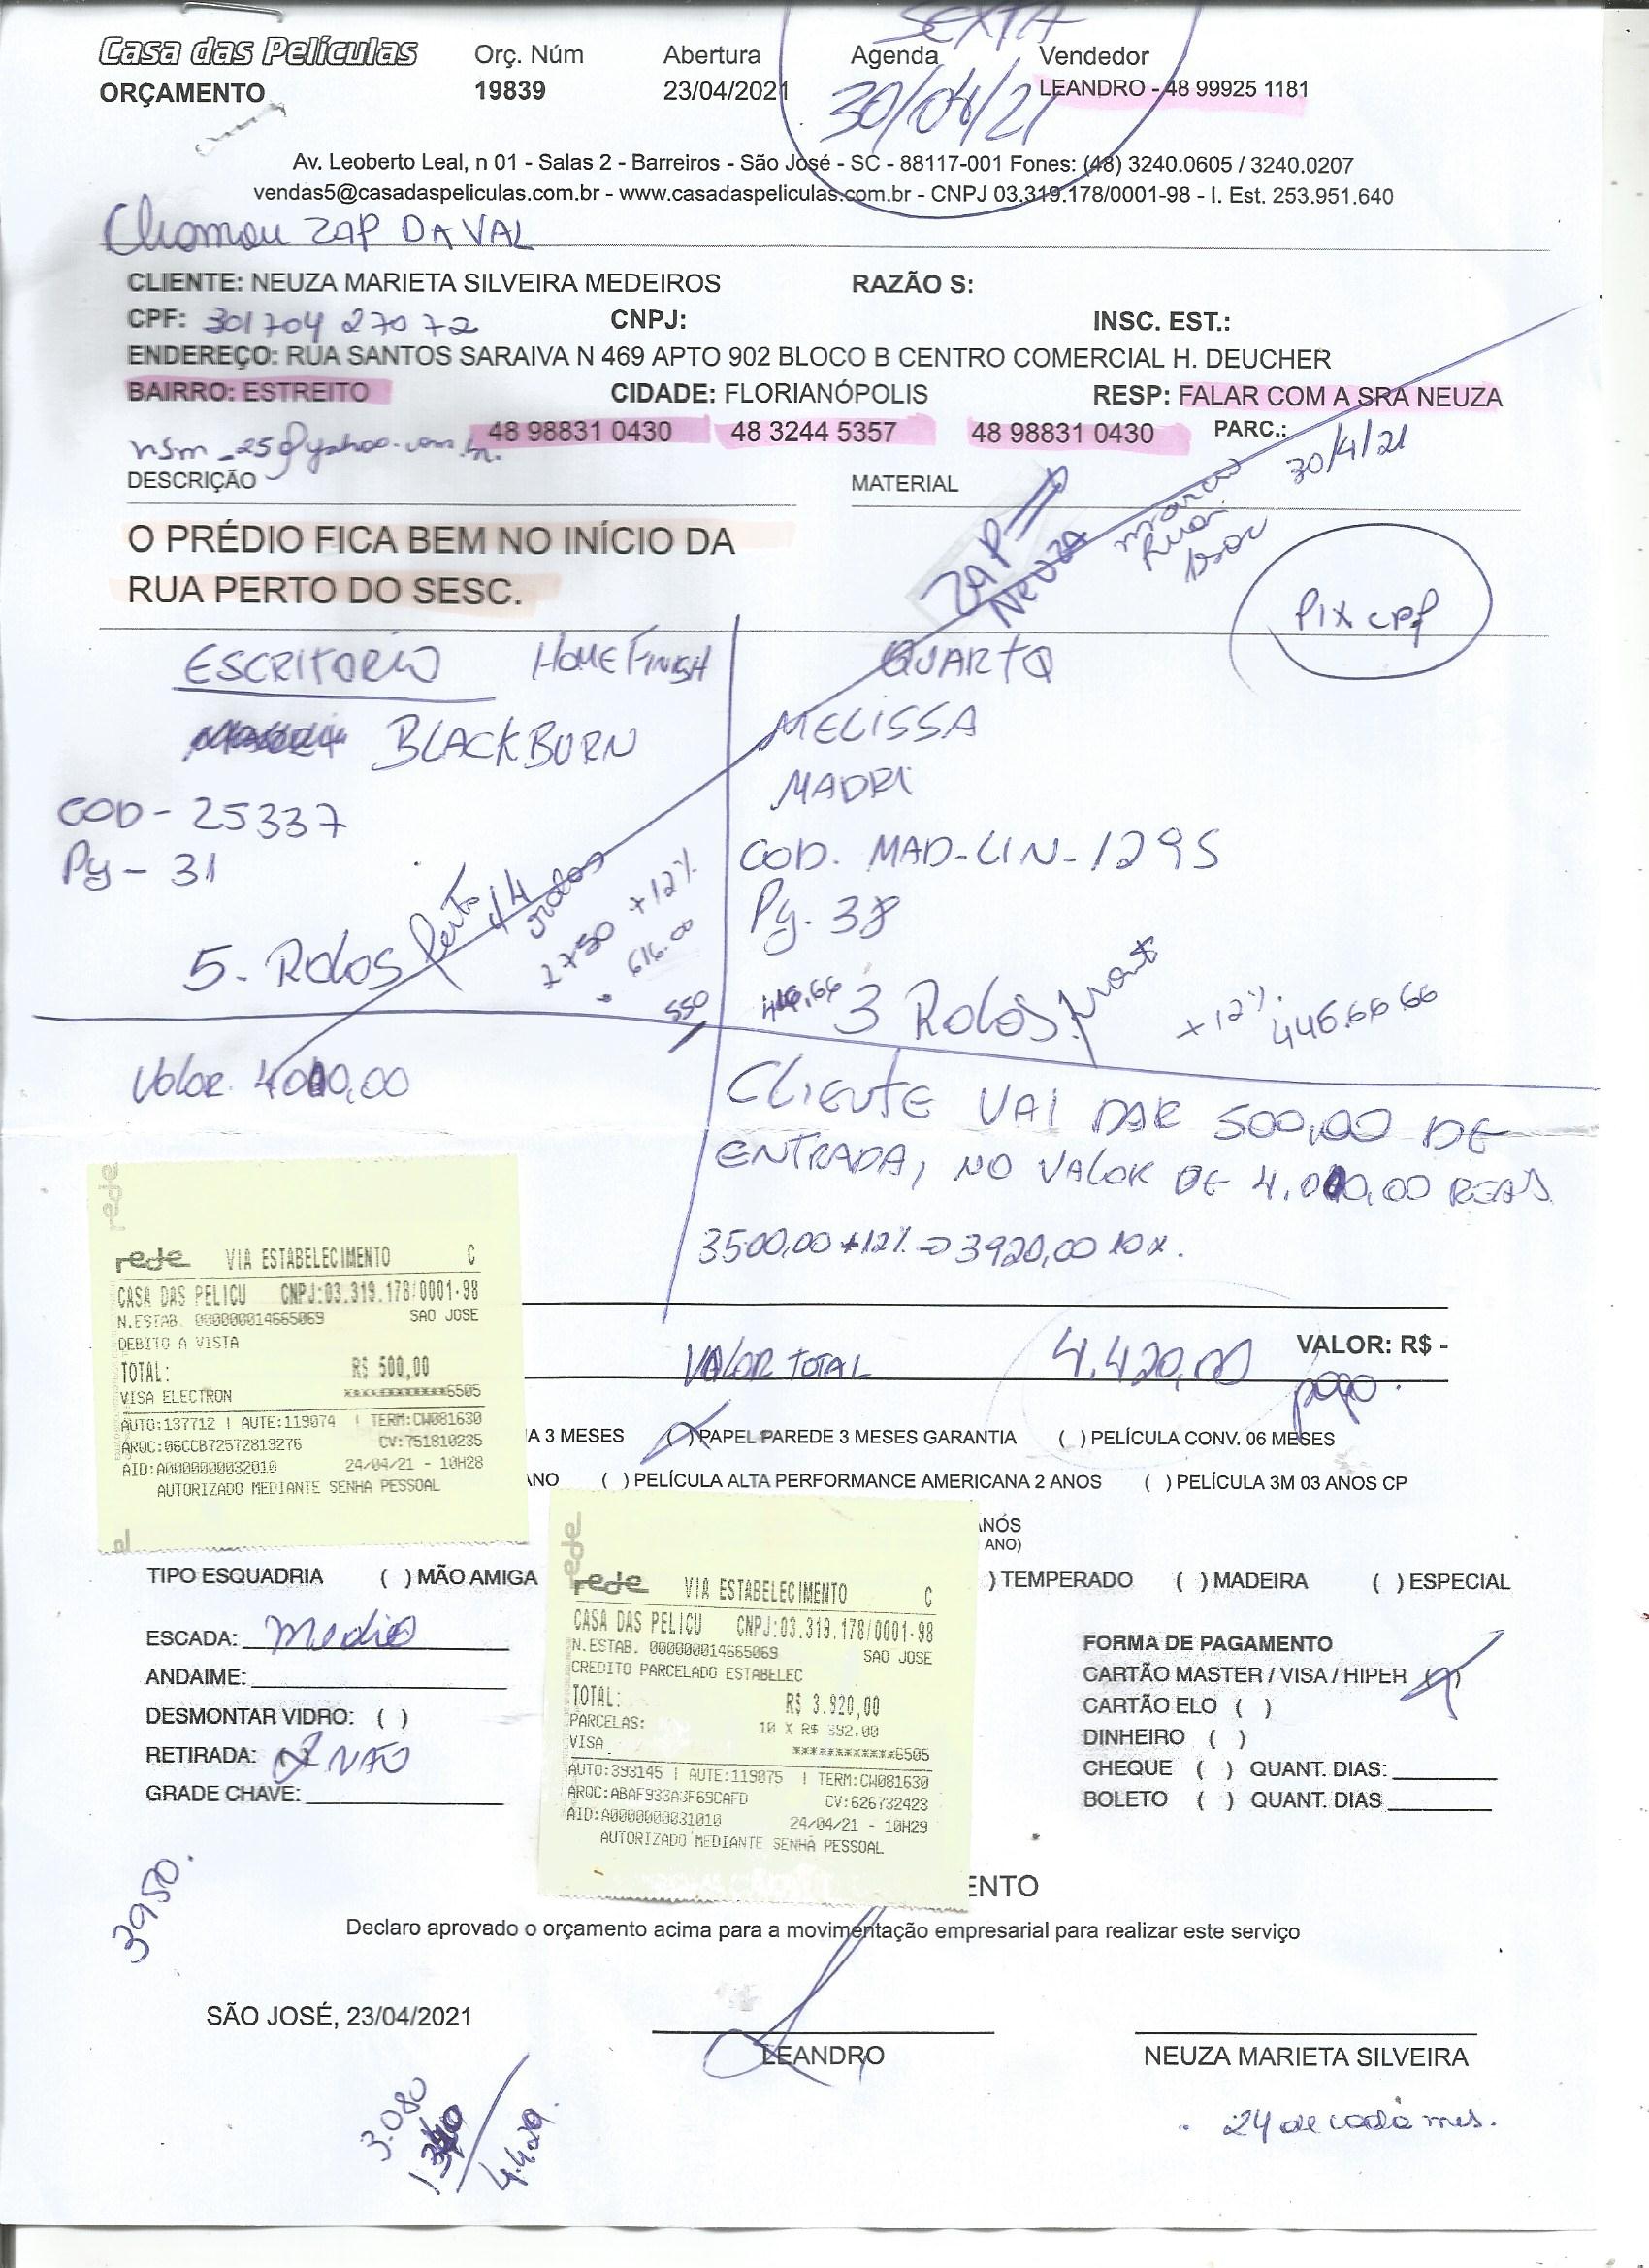 SEXTA
Casa das Películas Orç. Núm Abertura Agenda Vendedor
ORÇAMENTO 19839 23/04/2021 30/04/21 LEANDRO - 48 99925 1181
Av. Leoberto Leal, n 01 - Salas 2 - Barreiros - São José - SC - 88117-001 Fones: (48) 3240.0605 / 3240.0207
vendas5@casadaspeliculas.com.br - www.casadaspeliculas.com.br - CNPJ 03.319.178/0001-98 - I. Est. 253.951.640
Chamou ZAP DA VAL
CLIENTE: NEUZA MARIETA SILVEIRA MEDEIROS RAZÃO S:
CPF: 301704 27072 CNPJ: INSC. EST.:
ENDEREÇO: RUA SANTOS SARAIVA N 469 APTO 902 BLOCO B CENTRO COMERCIAL H. DEUCHER
BAIRRO: ESTREITO CIDADE: FLORIANÓPOLIS RESP: FALAR COM A SRA NEUZA
nsm_25@yahoo.com.br. 48 98831 0430 48 3244 5357 48 98831 0430 PARC.:
30/4/21
DESCRIÇÃO MATERIAL
ZAP
NEUZA
O PRÉDIO FICA BEM NO INÍCIO DA
RUA PERTO DO SESC.
PIX CPF
ESCRITORIO HOME FINISH
BLACKBURN
COD - 25337
Pg - 31
5. Rolos
14 rolos
2750 + 12%
616.00
550
QUARTO
MELISSA
MADRI
COD. MAD-LIN-1295
Pg. 38
446,66 3 Rolos
+12% 446.66.66
Valor. 4000,00
CLIENTE VAI DAR 500,00 DE
ENTRADA, NO VALOR DE 4.000,00 REAIS
3500,00 +12% => 3920,00 10x.
VALOR TOTAL 4.420,00 VALOR: R$ -
pago.
rede
rede VIA ESTABELECIMENTO C
CASA DAS PELICU CNPJ:03.319.178/0001-98
N.ESTAB. 000000014665069 SAO JOSE
DEBITO A VISTA
TOTAL: R$ 500,00
VISA ELECTRON ************6505
AUTO:137712 | AUTE:119074 | TERM:CW081630
ARQC:06CCB72572813276 CV:751810235
AID:A0000000032010 24/04/21 - 10H28
AUTORIZADO MEDIANTE SENHA PESSOAL
A 3 MESES ( ) PAPEL PAREDE 3 MESES GARANTIA ( ) PELÍCULA CONV. 06 MESES
ANO ( ) PELÍCULA ALTA PERFORMANCE AMERICANA 2 ANOS ( ) PELÍCULA 3M 03 ANOS CP
ANÓS
ANO)
TIPO ESQUADRIA ( ) MÃO AMIGA ) TEMPERADO ( ) MADEIRA ( ) ESPECIAL
rede
rede VIA ESTABELECIMENTO C
CASA DAS PELICU CNPJ:03.319.178/0001-98
N.ESTAB. 000000014665069 SAO JOSE
CREDITO PARCELADO ESTABELEC
TOTAL: R$ 3.920,00
PARCELAS: 10 X R$ 392,00
VISA ************6505
AUTO:393145 | AUTE:119075 | TERM:CW081630
ARQC:ABAF933A3F69CAFD CV:626732423
AID:A0000000031010 24/04/21 - 10H29
AUTORIZADO MEDIANTE SENHA PESSOAL
ESCADA: Media
ANDAIME:
DESMONTAR VIDRO: ( )
RETIRADA: ( ) NÃO
GRADE CHAVE:
FORMA DE PAGAMENTO
CARTÃO MASTER / VISA / HIPER (X)
CARTÃO ELO ( )
DINHEIRO ( )
CHEQUE ( ) QUANT. DIAS:
BOLETO ( ) QUANT. DIAS
3950.
ENTO
Declaro aprovado o orçamento acima para a movimentação empresarial para realizar este serviço
SÃO JOSÉ, 23/04/2021
LEANDRO NEUZA MARIETA SILVEIRA
3.080
1340
4.420.
. 24 de cada mes.